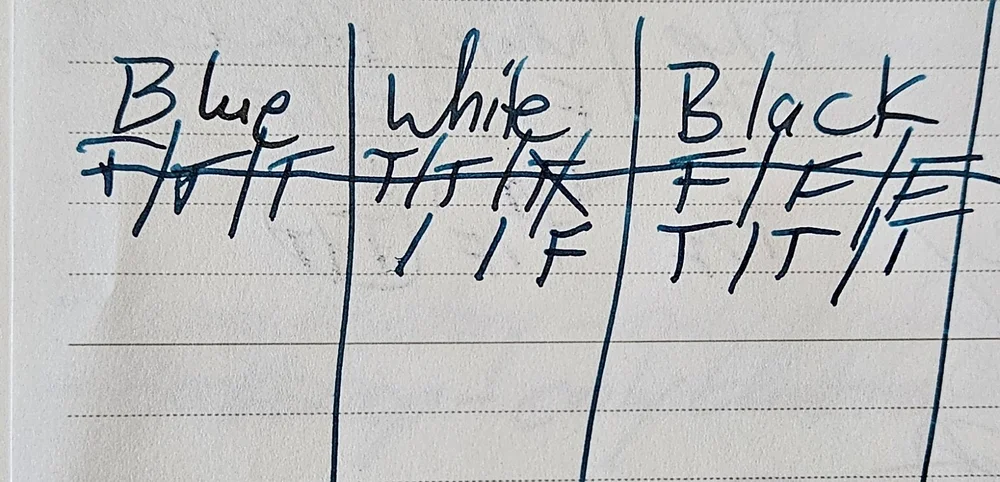 Blue White Black
T/T/T T/T/ F/F/F
/ / F T/T/